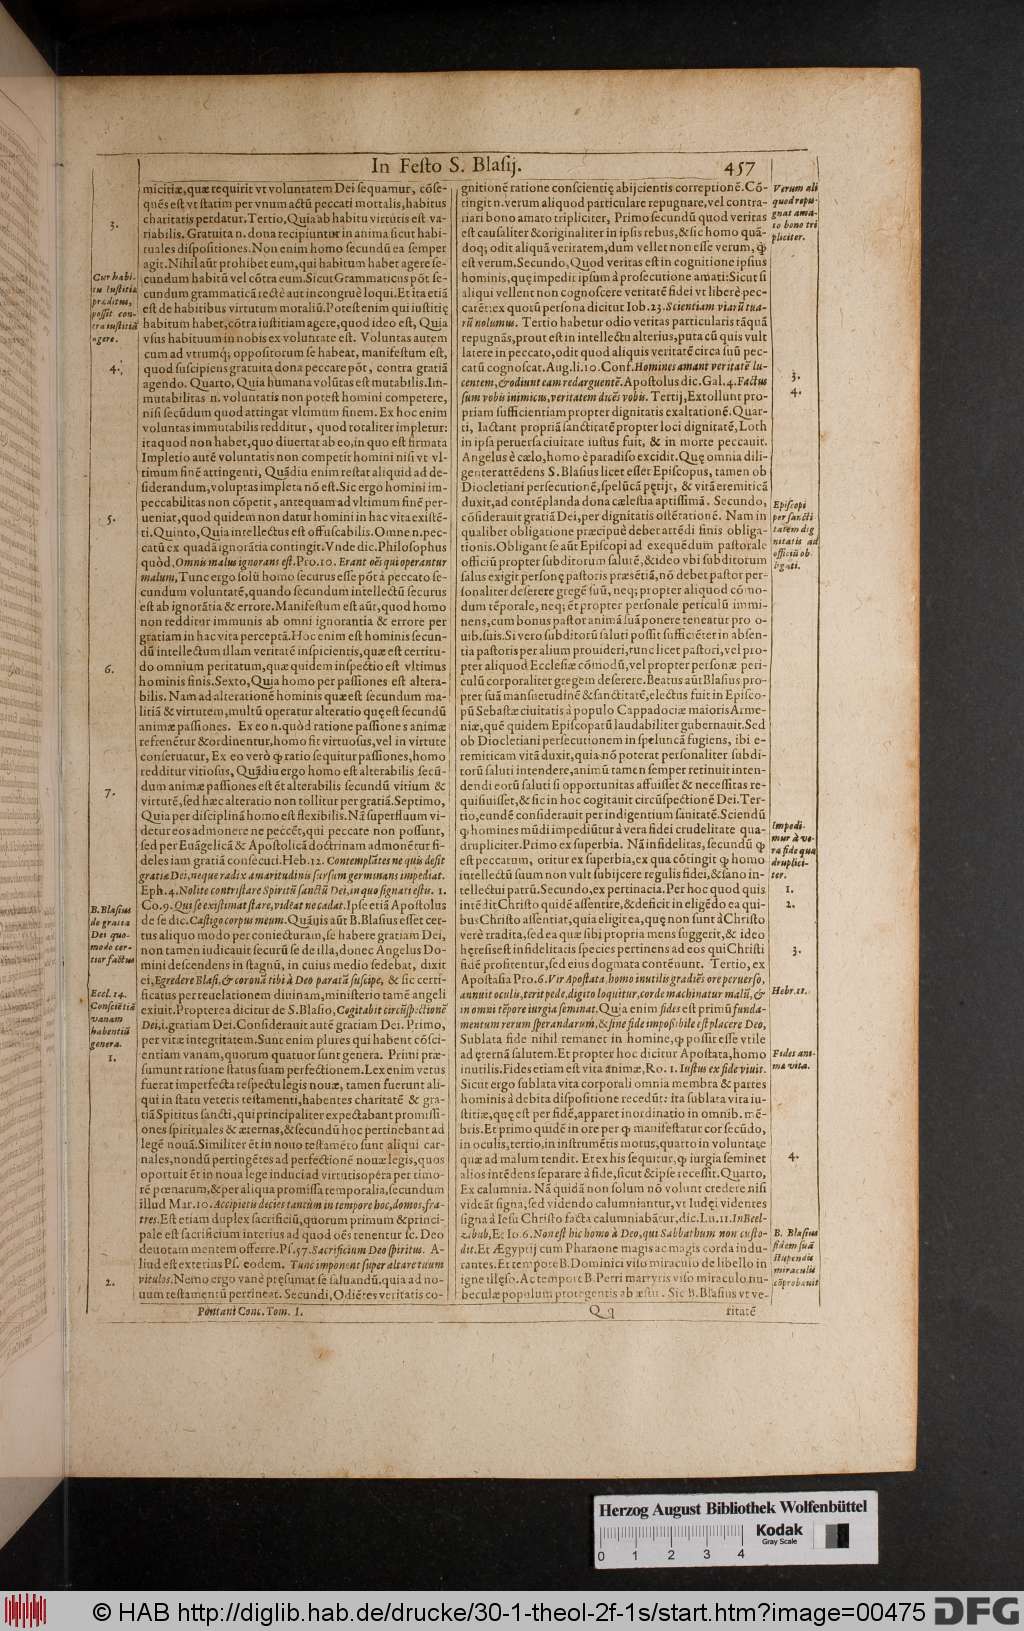 In Festo S. Blasij.
457
micitiæ, quæ requirit vt voluntatem Dei sequamur, cōse-
quēs est vt statim per vnum actū peccati mortalis, habitus
charitatis perdatur. Tertio, Quia ab habitu virtutis est va-
riabilis. Gratuita n. dona recipiuntur in anima sicut habi-
tuales dispositiones. Non enim homo secundū ea semper
agit. Nihil aūt prohibet eum, qui habitum habet agere se-
cundum habitū vel cōtra eum. Sicut Grammaticus pōt se-
cundum grammaticā rectè aut incongruè loqui. Et ita etiā
est de habitibus virtutum moraliū. Potest enim qui iustitię
habitum habet, cōtra iustitiam agere, quod ideo est, Quia
vsus habituum in nobis ex voluntate est. Voluntas autem
cum ad vtrumq; oppositorum se habeat, manifestum est,
quod suscipiens gratuita dona peccare pōt, contra gratiā
agendo. Quarto, Quia humana volūtas est mutabilis. Im-
mutabilitas n. voluntatis non potest homini competere,
nisi secūdum quod attingat vltimum finem. Ex hoc enim
voluntas immutabilis redditur, quod totaliter impletur:
ita quod non habet, quo diuertat ab eo, in quo est firmata
Impletio autē voluntatis non competit homini nisi vt vl-
timum finē attingenti, Quādiu enim restat aliquid ad de-
siderandum, voluptas impleta nō est. Sic ergo homini im-
peccabilitas non cōpetit, antequam ad vltimum finē per-
ueniat, quod quidem non datur homini in hac vita existē-
ti. Quinto, Quia intellectus est offuscabilis. Omne n. pec-
catū ex quadā ignorātia contingit. Vnde dic. Philosophus
quòd, Omnis malus ignorans est. Pro. 10. Erant oēs qui operantur
malum, Tunc ergo solū homo securus esse pōt à peccato se-
cundum voluntatē, quando secundum intellectū securus
est ab ignorātia & errore. Manifestum est aūt, quod homo
non redditur immunis ab omni ignorantia & errore per
gratiam in hac vita perceptā. Hoc enim est hominis secun-
dū intellectum illam veritatē inspicientis, quæ est certitu-
do omnium peritatum, quæ quidem inspectio est vltimus
hominis finis. Sexto, Quia homo per passiones est altera-
bilis. Nam ad alterationē hominis quæ est secundum ma-
litiā & virtutem, multū operatur alteratio quę est secundū
animæ passiones. Ex eo n. quòd ratione passiones animæ
refrenētur & ordinentur, homo fit virtuosus, vel in virtute
conseruatur, Ex eo verò ꝙ ratio sequitur passiones, homo
redditur vitiosus, Quādiu ergo homo est alterabilis secū-
dum animæ passiones est ēt alterabilis secundū vitium &
virtutē, sed hæc alteratio non tollitur per gratiā. Septimo,
Quia per disciplinā homo est flexibilis. Nā superfluum vi-
detur eos admonere ne peccēt, qui peccare non possunt,
sed per Euāgelicā & Apostolicā doctrinam admonētur fi-
deles iam gratiā consecuti. Heb. 12. Contemplātes ne quis desit
gratiæ Dei, neque radix amaritudinis sursum germinans impediat.
Eph. 4. Nolite contristare Spiritū sanctū Dei, in quo signati estis. 1.
Co. 9. Qui se existimat stare, videat ne cadat. Ipse etiā Apostolus
de se dic. Castigo corpus meum. Quāuis aūt B. Blasius esset cer-
tus aliquo modo per coniecturam, se habere gratiam Dei,
non tamen iudicauit securū se de illa, donec Angelus Do-
mini descendens in stagnū, in cuius medio sedebat, dixit
ei, Egredere Blasi, & coronā tibi à Deo paratā suscipe, & sic certi-
ficatus per reuelationem diuinam, ministerio tamē angeli
exiuit. Propterea dicitur de S. Blasio, Cogitabit circūspectionē
Dei, i. gratiam Dei. Considerauit autē gratiam Dei. Primo,
per vitæ integritatem. Sunt enim plures qui habent cōsci-
entiam vanam, quorum quatuor sunt genera. Primi præ-
sumunt ratione status suam perfectionem. Lex enim vetus
fuerat imperfecta respectu legis nouæ, tamen fuerunt ali-
qui in statu veteris testamenti, habentes charitatē & gra-
tiā Spiritus sancti, qui principaliter expectabant promissi-
ones spirituales & æternas, & secundū hoc pertinebant ad
legē nouā. Similiter ēt in nouo testamēto sunt aliqui car-
nales, nondū pertingētes ad perfectionē nouæ legis, quos
oportuit ēt in noua lege induci ad virtutis opéra per timo-
rē pœnarum, & per aliqua promissa temporalia, secundum
illud Mar. 10. Accipietis decies tantùm in tempore hoc, domos, fra-
tres. Est etiam duplex sacrificiū, quorum primum & princi-
pale est sacrificium interius ad quod oēs tenentur sc. Deo
deuotam mentem offerre. Ps. 57. Sacrificium Deo spiritus. A-
liud est exterius Ps. eodem. Tunc imponent super altare tuum
vitulos. Nemo ergo vanè pręsumat se saluandū, quia ad no-
uum testamentū pertineat. Secundi, Odiētes veritatis co-
Pontani Conc. Tom. 1.
3.
Cur habi-
tu Iustitiæ
præditus,
possit con-
tra iustitiā
agere.
4.
5.
6.
7.
B. Blasius
de gratia
Dei quo-
modo cer-
tior factus
Eccl. 14.
Consciētiā
vanam
habentiū
genera.
1.
2.
gnitionē ratione conscientię abijcientis correptionē. Cō-
tingit n. verum aliquod particulare repugnare, vel contra-
riari bono amato tripliciter, Primo secundū quod veritas
est causaliter & originaliter in ipsis rebus, & sic homo quā-
doq; odit aliquā veritatem, dum vellet non esse verum, ꝙ
est verum. Secundo, Quod veritas est in cognitione ipsius
hominis, quę impedit ipsum à prosecutione amati: Sicut si
aliqui vellent non cognoscere veritatē fidei vt liberè pec-
carēt: ex quorū persona dicitur Iob. 23. Scientiam viarū tua-
rū nolumus. Tertio habetur odio veritas particularis tāquā
repugnās, prout est in intellectu alterius, puta cū quis vult
latere in peccato, odit quod aliquis veritatē circa suū pec-
catū cognoscat. Aug. li. 10. Conf. Homines amant veritatē lu-
centem, & odiunt eam redarguentē. Apostolus dic. Gal. 4. Factus
sum vobis inimicus, veritatem dicēs vobis. Tertij, Extollunt pro-
priam sufficientiam propter dignitatis exaltationē. Quar-
ti, Iactant propriā sanctitatē propter loci dignitatē, Loth
in ipsa peruersa ciuitate iustus fuit, & in morte peccauit.
Angelus è cælo, homo è paradiso excidit. Quę omnia dili-
genter attēdens S. Blasius licet esset Episcopus, tamen ob
Diocletiani persecutionē, spelūcā pętijt, & vitā eremiticā
duxit, ad contēplanda dona cælestia aptissimā. Secundo,
cōsiderauit gratiā Dei, per dignitatis ostētationē. Nam in
qualibet obligatione præcipuè debet attēdi finis obliga-
tionis. Obligant se aūt Episcopi ad exequēdum pastorale
officiū propter subditorum salutē, & ideo vbi subditorum
salus exigit personę pastoris præsētiā, nō debet pastor per-
sonaliter deserere gregē suū, neq; propter aliquod cōmo-
dum tēporale, neq; ēt propter personale periculū immi-
nens, cum bonus pastor animā suā ponere teneatur pro o-
uib. suis. Si vero subditorū saluti possit sufficiēter in absen-
tia pastoris per alium prouideri, tunc licet pastori, vel pro-
pter aliquod Ecclesiæ cōmodū, vel propter personæ peri-
culū corporaliter gregem deserere. Beatus aūt Blasius pro-
pter suā mansuetudinē & sanctitatē, electus fuit in Episco-
pū Sebastæ ciuitatis à populo Cappadociæ maioris Arme-
niæ, quē quidem Episcopatū laudabiliter gubernauit. Sed
ob Diocletiani persecutionem in speluncā fugiens, ibi e-
remiticam vitā duxit, quia nō poterat personaliter subdi-
torū saluti intendere, animū tamen semper retinuit inten-
dendi eorū saluti si opportunitas affuisset & necessitas re-
quisiuisset, & sic in hoc cogitauit circūspectionē Dei. Ter-
tio, eundē considerauit per indigentium sanitatē. Sciendū
ꝙ homines mūdi impediūtur à vera fidei crudelitate qua-
drupliciter. Primo ex superbia. Nā infidelitas, secundū ꝙ
est peccatum, oritur ex superbia, ex qua cōtingit ꝙ homo
intellectū suum non vult subijcere regulis fidei, & sano in-
tellectui patrū. Secundo, ex pertinacia. Per hoc quod quis
intēdit Christo quidē assentire, & deficit in eligēdo ea qui-
bus Christo assentiat, quia eligit ea, quę non sunt à Christo
verè tradita, sed ea quæ sibi propria mens suggerit, & ideo
hęresis est infidelitatis species pertinens ad eos qui Christi
fidē profitentur, sed eius dogmata contēnunt. Tertio, ex
Apostasia Pro. 6. Vir Apostata, homo inutilis gradiēs ore peruerso,
annuit oculis, terit pede, digito loquitur, corde machinatur malū, &
in omni tēpore iurgia seminat. Quia enim fides est primū funda-
mentum rerum sperandarum, & sine fide impossibile est placere Deo,
Sublata fide nihil remanet in homine, ꝙ possit esse vtile
ad ęternā salutem. Et propter hoc dicitur Apostata, homo
inutilis. Fides etiam est vita animæ, Ro. 1. Iustus ex fide viuit.
Sicut ergo sublata vita corporali omnia membra & partes
hominis à debita dispositione recedūt: ita sublata vita iu-
stitiæ, quę est per fidē, apparet inordinatio in omnib. mē-
bris. Et primo quidē in ore per ꝙ manifestatur cor secūdo,
in oculis, tertio, in instrumētis motus, quarto in voluntate
quæ ad malum tendit. Et ex his sequitur, ꝙ iurgia seminet
alios intēdens separare à fide, sicut & ipse recessit. Quarto,
Ex calumnia. Nā quidā non solum nō volunt credere nisi
videāt signa, sed videndo calumniantur, vt Iudęi videntes
signa à Iesu Christo facta calumniabātur, dic. Lu. 11. In Beel-
zebub, Et Io. 6. Non est hic homo à Deo, qui Sabbathum non custo-
dit. Et Ægyptij cum Pharaone magis ac magis corda indu-
rantes. Et tempore B. Dominici viso miraculo de libello in
igne illęso. Ac tempore B. Petri martyris viso miraculo nu-
beculæ populum protegentis ab æstu. Sic B. Blasius vt ve-
Q q
ritatē
Verum ali
quod repu-
gnat ama-
to bono tri
pliciter.
3.
4.
Episcopi
per sancti
tatem dig
nitatis ad
officiū ob
ligati.
Impedi-
mur à ve-
ra fide qua
druplici-
ter.
1.
2.
3.
Hebr. 11.
Fides ani-
ma vita.
4.
B. Blasius
fidem suā
stupendis
miraculis
cōprobauit
Herzog August Bibliothek Wolfenbüttel
0 1 2 3 4
Kodak
Gray Scale
© HAB http://diglib.hab.de/drucke/30-1-theol-2f-1s/start.htm?image=00475
DFG